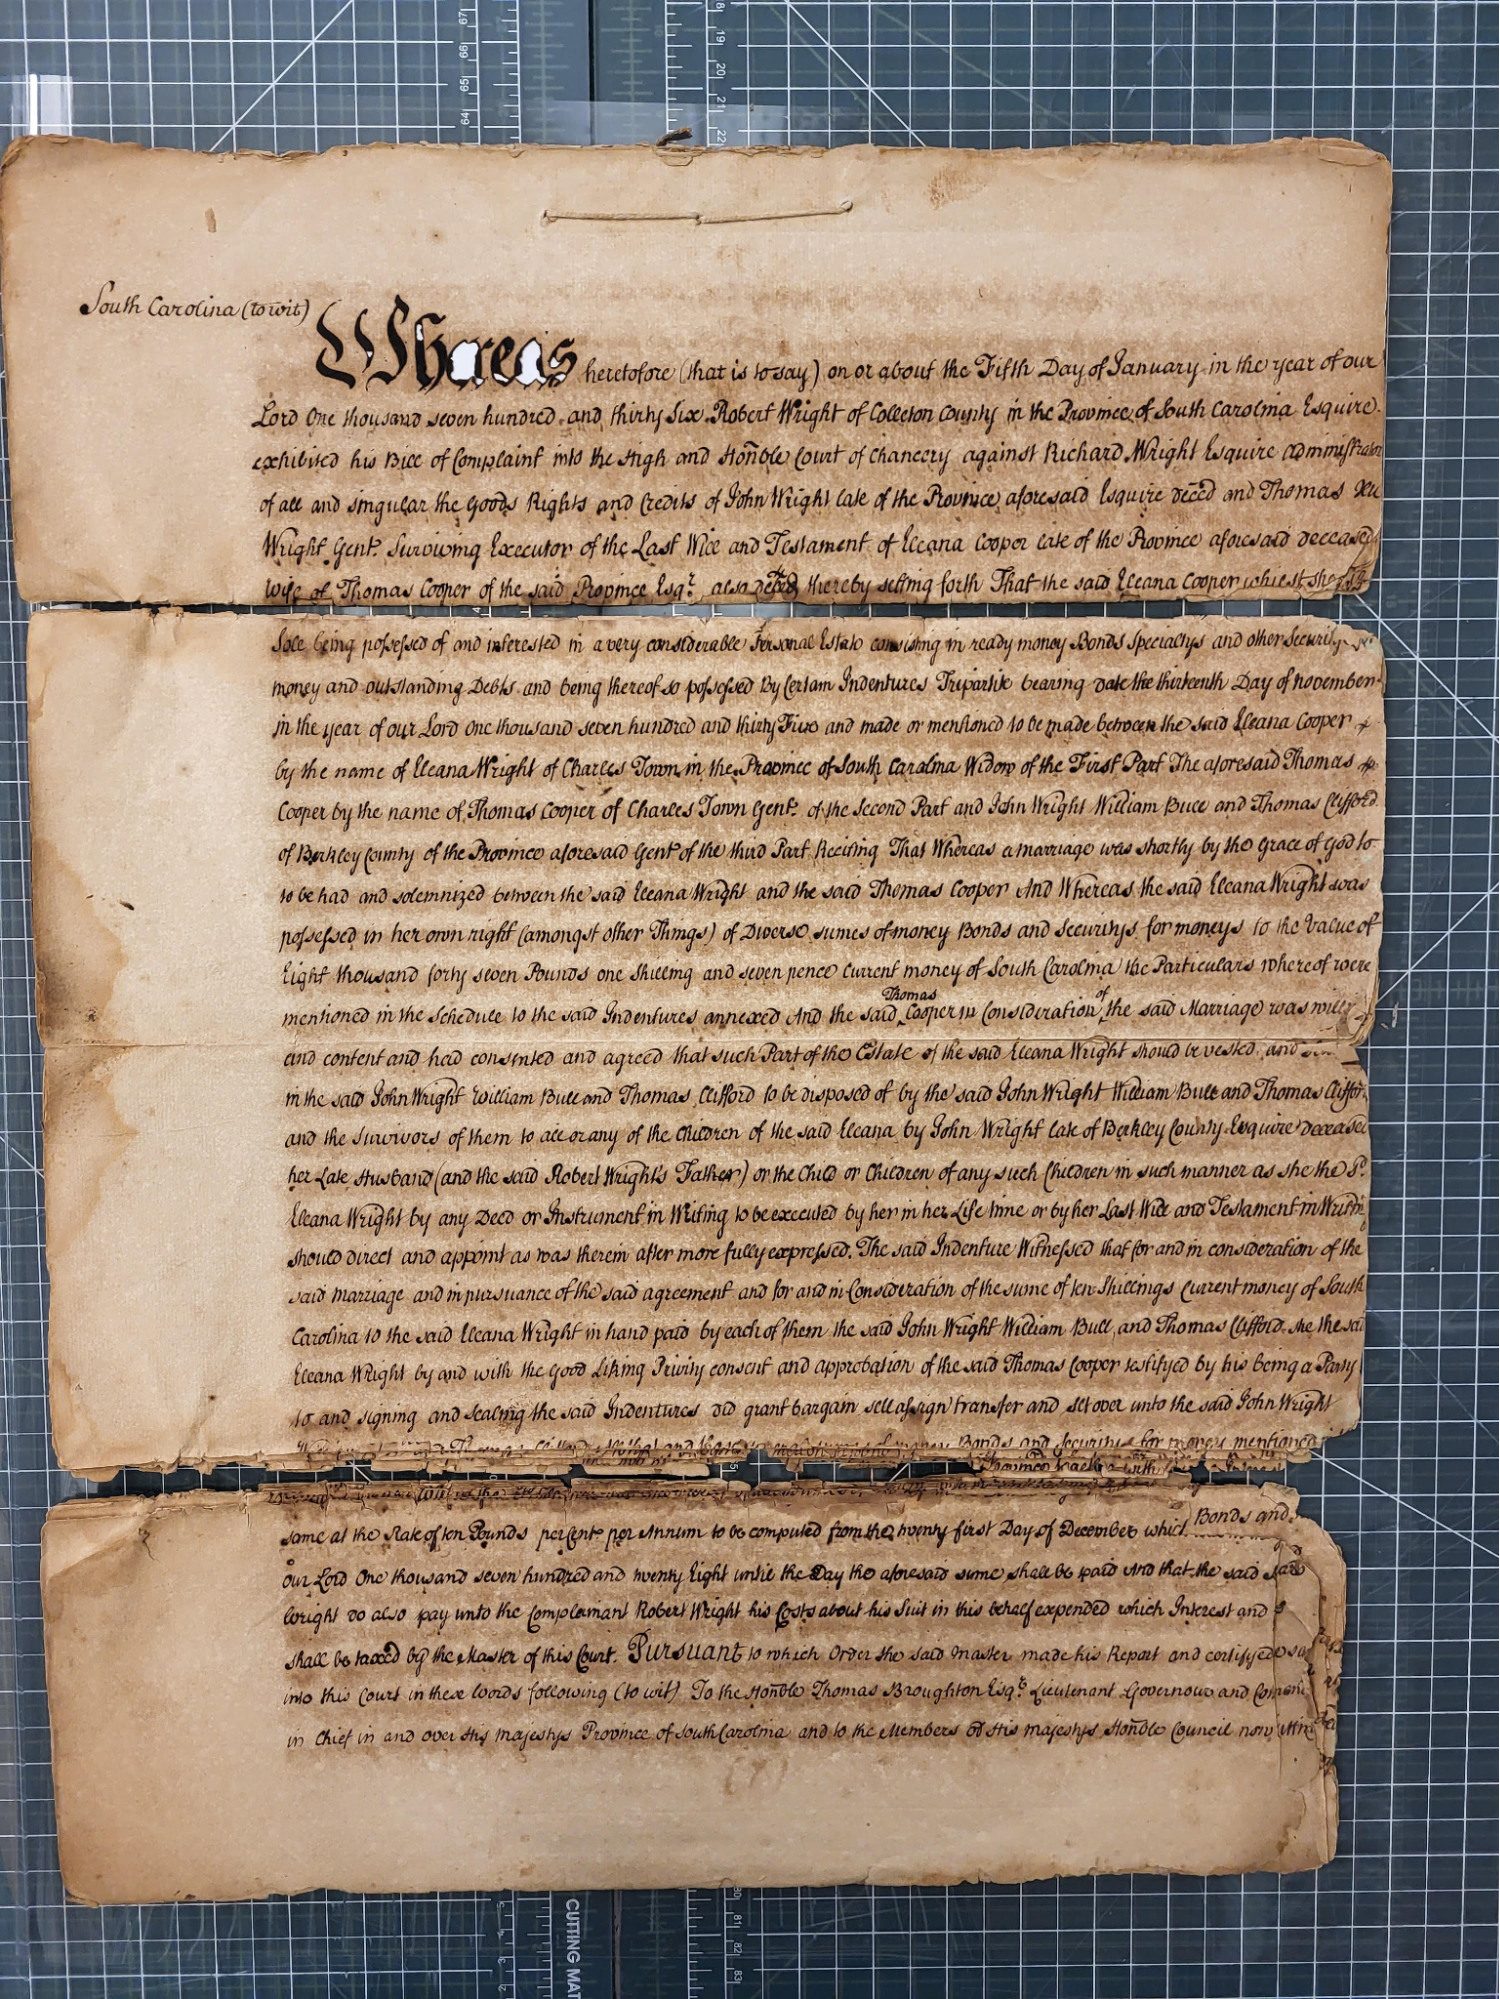 South Carolina (to wit)
Whereas heretofore (that is to say) on or about the Fifth Day of January in the year of our
Lord One thousand seven hundred and thirty Six Robert Wright of Colleton County in the Province of South Carolina Esquire
exhibited his Bill of Complaint into the High and Honble Court of Chancery against Richard Wright Esquire administrator
of all and singular the Goods Rights and Credits of John Wright late of the Province aforesaid Esquire deced and Thomas
Wright Gent. Surviving Executor of the Last Will and Testament of Eleana Cooper late of the Province aforesaid deceased
wife of Thomas Cooper of the said Province Esqr. also deced thereby setting forth That the said Eleana Cooper whilest she
Sole being possessed of and interested in a very considerable Personal Estate consisting in ready money Bonds Specialtys and other
money and outstanding Debts and being thereof so possessed By Certain Indentures Tripartite bearing date the thirteenth Day of November
in the year of our Lord One thousand seven hundred and thirty Five and made or mentioned to be made between the said Eleana Cooper
by the name of Eleana Wright of Charles Town in the Province of South Carolina Widow of the First Part The aforesaid Thomas
Cooper by the name of Thomas Cooper of Charles Town Gent. of the Second Part and John Wright William Bull and Thomas Clifford
of Berkley County of the Province aforesaid Gent of the third Part Reciting That Whereas a marriage was shortly by the Grace of God to
to be had and solemnized between the said Eleana Wright and the said Thomas Cooper And Whereas the said Eleana Wright was
possessed in her own right (amongst other Things) of Diverse sumes of money Bonds and Securitys for moneys to the Value of
Eight thousand forty seven Pounds one shilling and seven pence Current money of South Carolina the Particulars whereof were
mentioned in the Schedule to the said Indentures annexed And the said Thomas Cooper in Consideration of the said Marriage was
and content and had consented and agreed that such Part of the Estate of the said Eleana Wright should be vested and
in the said John Wright William Bull and Thomas Clifford to be disposed of by the said John Wright William Bull and Thomas Clifford
and the Survivors of them to all or any of the Children of the said Eleana by John Wright late of Berkley County Esquire deceased
her Late Husband (and the said Robert Wright's Father) or the Child or Children of any such Children in such manner as she the sd.
Eleana Wright by any Deed or Instrument in Writing to be executed by her in her Life time or by her Last Will and Testament in Writing
should direct and appoint as was therein after more fully expressed. The said Indenture Witnessed that for and in consideration of the
said marriage and in pursuance of the said agreement and for and in Consideration of the sume of ten Shillings Current money of South
Carolina to the said Eleana Wright in hand paid by each of them the said John Wright William Bull and Thomas Clifford she the said
Eleana Wright by and with the good Liking Privity consent and approbation of the said Thomas Cooper testifyed by his being a Party
to and signing and sealing the said Indentures did grant bargain sell assign transfer and set over unto the said John Wright
Bonds and Securitys for moneys mentioned
Province with
Bonds and
same at the Rate of ten Pounds per Cent. per Annum to be computed from the twenty first Day of December which
our Lord One thousand seven hundred and twenty Eight untill the Day the aforesaid sume shall be paid And that the said
Wright do also pay unto the Complainant Robert Wright his Costs about his Suit in this behalf expended which Interest and
shall be taxed by the Master of this Court. Pursuant to which Order the said Master made his Report and certifyed
into this Court in these Words following (to wit) To the Honble Thomas Broughton Esqr. Lieutenant Governour and
in Chief in and over His Majestys Province of South Carolina and to the Members of His Majestys Honble Council now